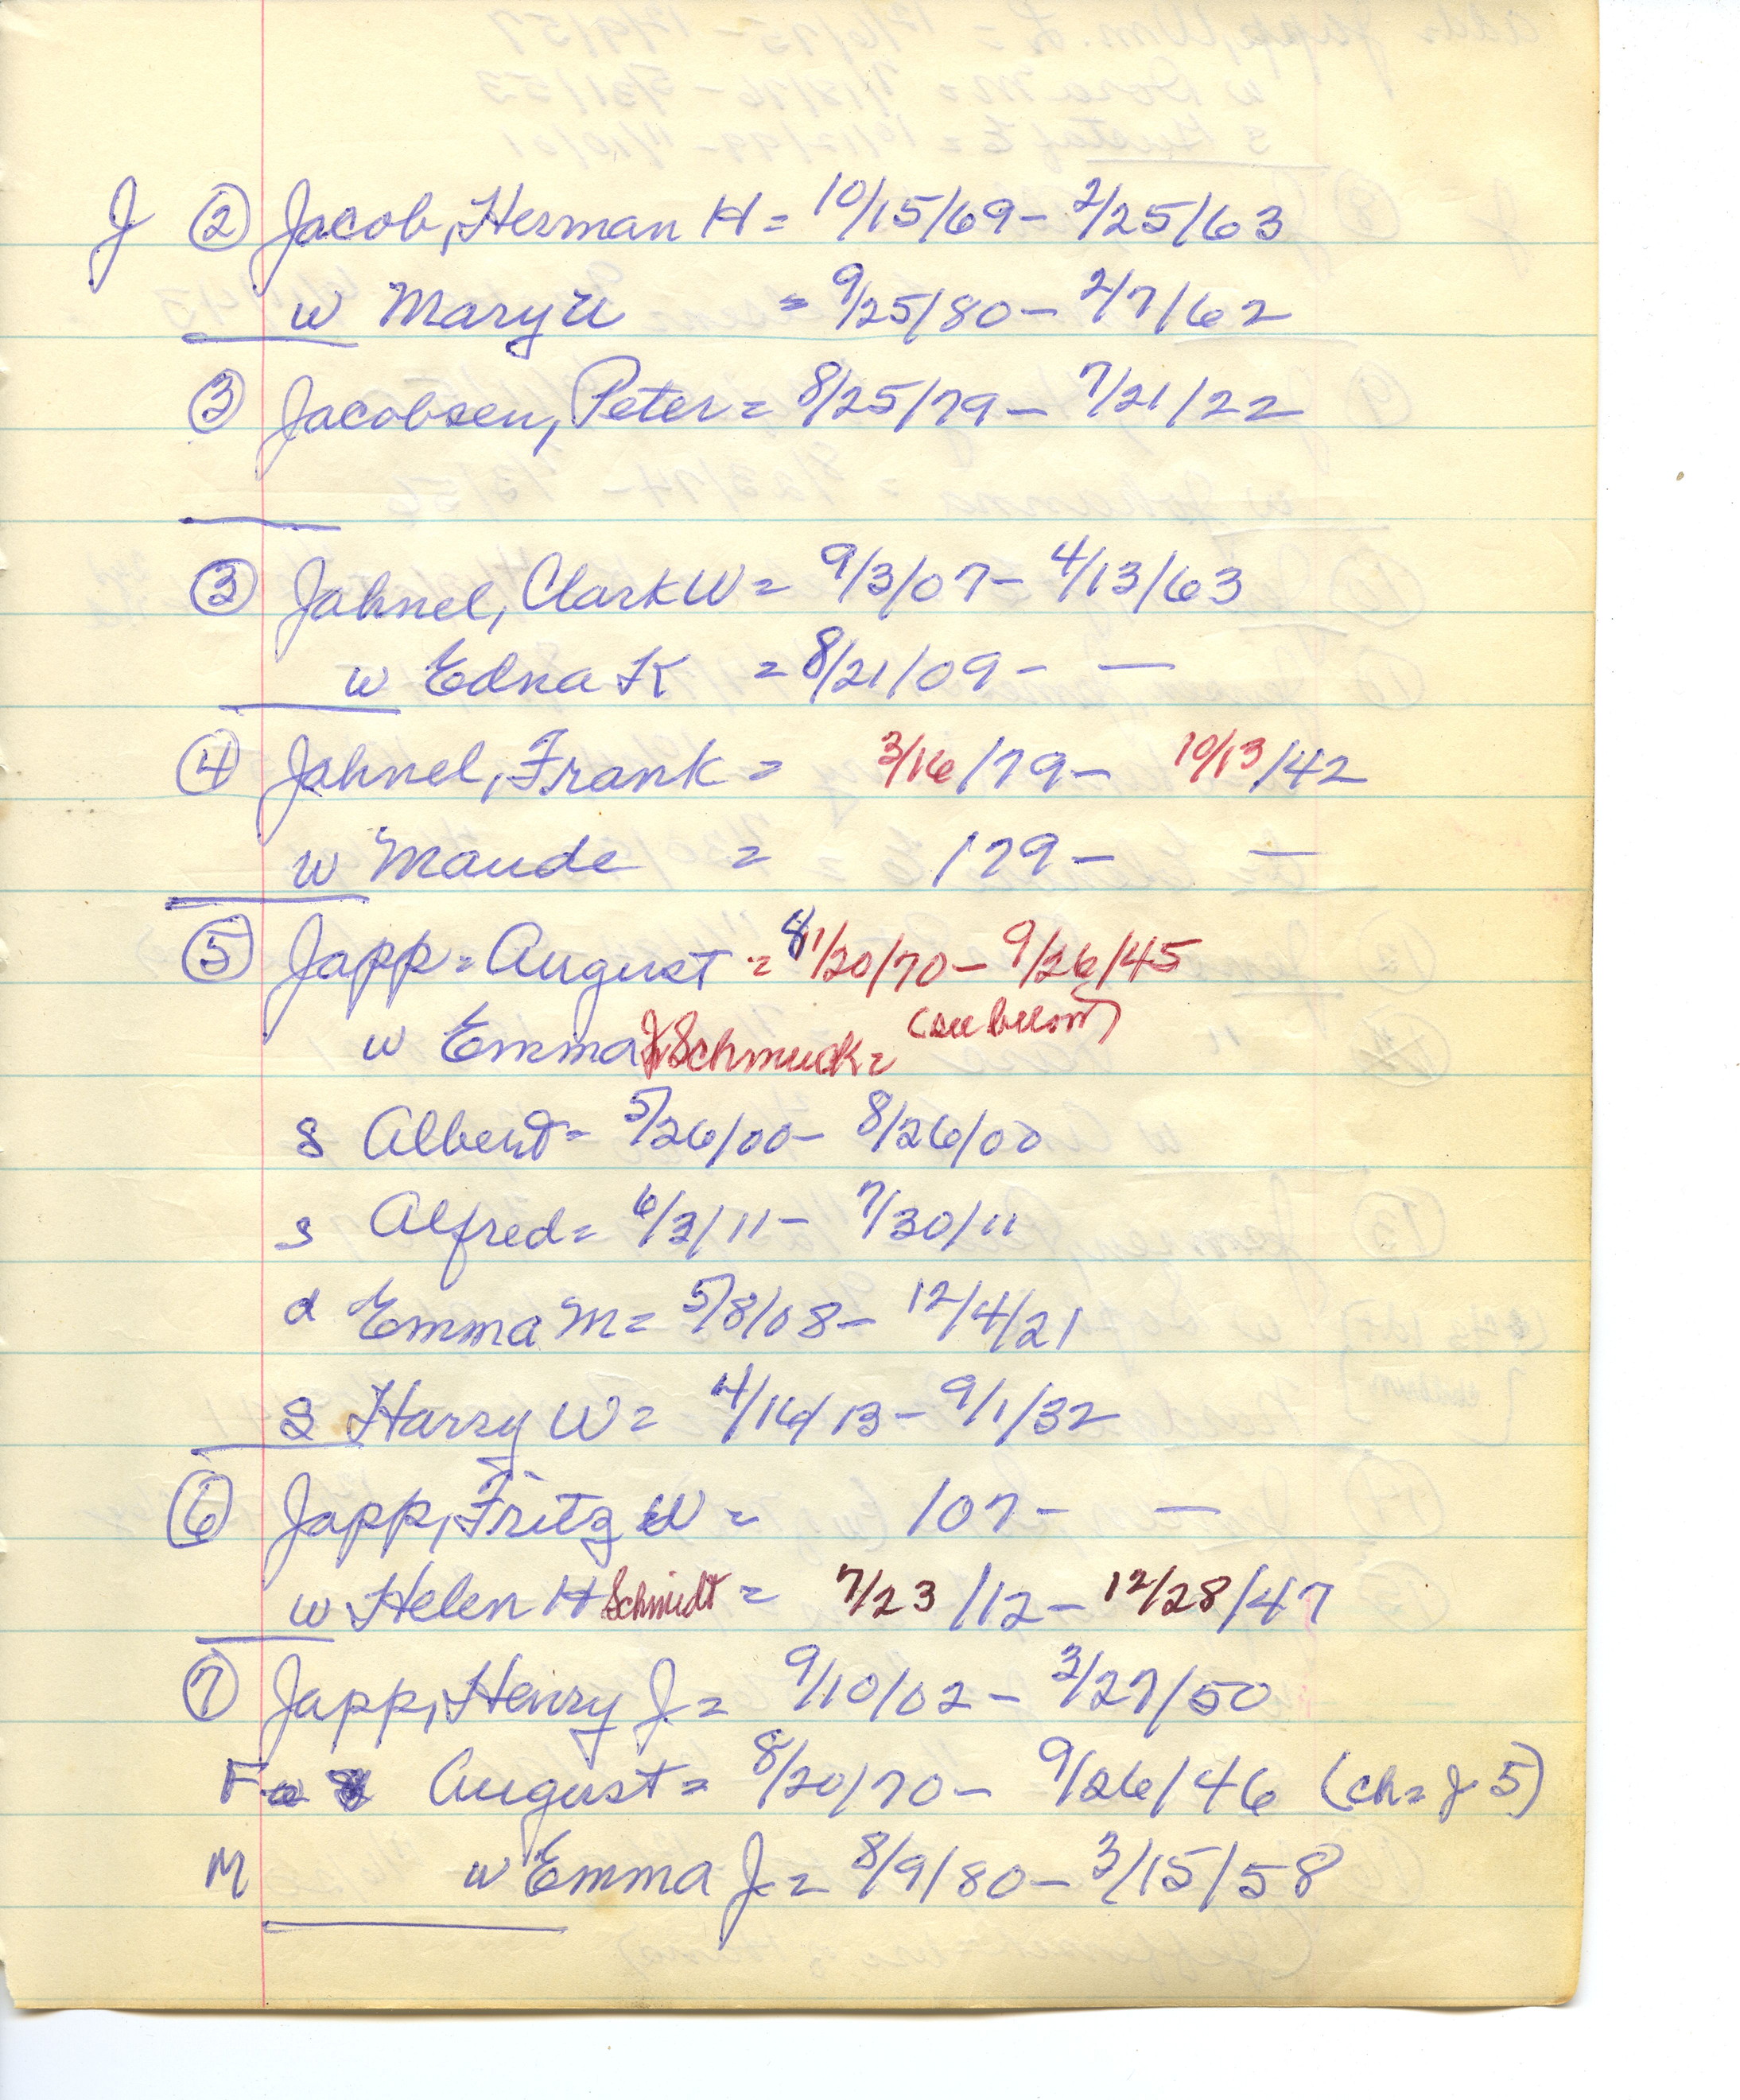 J ② Jacob, Herman H = 10/15/69 - 2/25/63
w Mary U = 9/25/80 - 2/7/62
③ Jacobsen, Peter = 8/25/79 - 7/21/22
③ Jahnel, Clark W = 9/3/07 - 4/13/63
w Edna K = 8/21/09 - —
④ Jahnel, Frank = 3/16/79 - 10/13/42
w Maude = /79 - —
⑤ Japp = August = 8/20/70 - 9/26/45
w Emma J Schmuck = (see below)
s Albert = 5/26/00 - 8/26/00
s Alfred = 6/3/11 - 7/30/11
d Emma M = 5/8/08 - 12/4/21
s Harry W = 4/16/13 - 9/1/32
⑥ Japp, Fritz W = /07 - —
w Helen H Schmidt = 7/23/12 - 12/28/47
⑦ Japp, Henry J = 9/10/02 - 3/27/50
Fa August = 8/20/70 - 9/26/46 (ch = J 5)
M w Emma J = 8/9/80 - 3/15/58